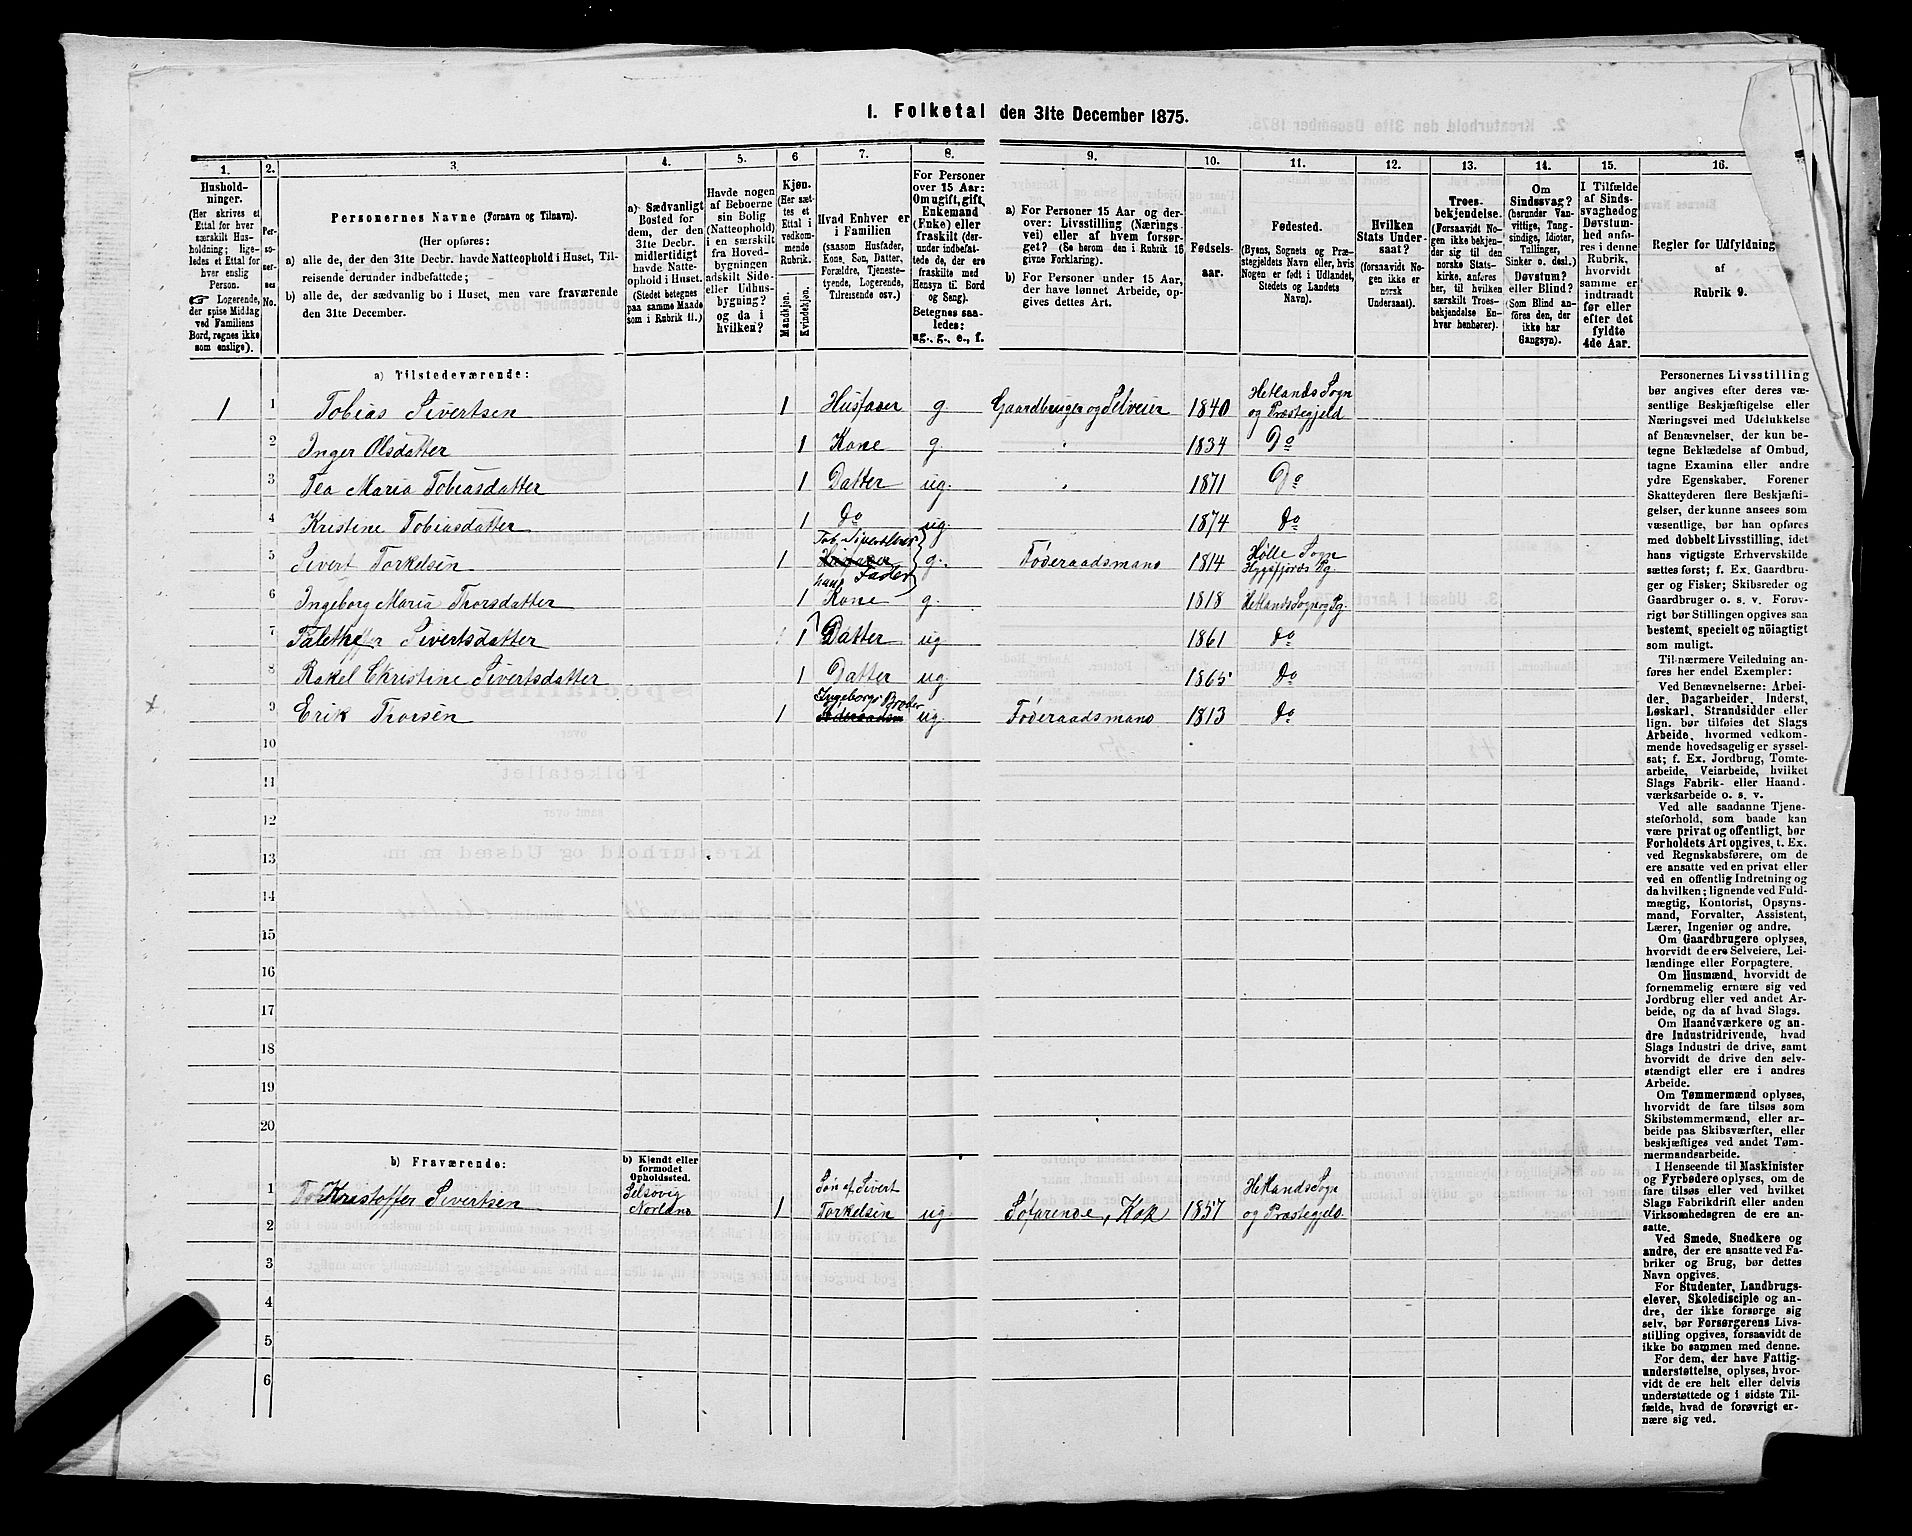 1. Folketal den 31te December 1875.
1. 2. 3. 4. 5. 6 7. 8. 9. 10. 11. 12. 13. 14. 15. 16.
Hushold-
ninger.
(Her skrives et
Ettal for hver
særskilt Hus-
holdning; lige-
ledes et Ettal for
hver enslig
Person.
☞ Logerende,
der spise Middag
ved Familiens
Bord, regnes ikke
som enslige).
Per-
so-
ner-
nes
No.
Personernes Navne (Fornavn og Tilnavn).
(Her opføres:
a) alle de, der den 31te Decbr. havde Natteophold i Huset, Til-
reisende derunder indbefattede;
b) alle de, der sædvanlig bo i Huset, men vare fraværende
den 31te December.
a) Sædvanligt
Bosted for
dem, der den
31te Decbr.
midlertidigt
havde Natte-
ophold i Huset.
(Stedet betegnes
paa samme Maade
som i Rubrik 11.)
Havde nogen
af Beboerne
sin Bolig
(Natteophold)
i en særskilt
fra Hoved-
bygningen
adskilt Side-
eller Udhus-
bygning?
og da i
hvilken?
Kjøn.
(Her sæt-
tes et
Ettal i
vedkom-
mende
Rubrik.
Mandkjøn.
Kvindekjøn.
Hvad Enhver er
i Familien
(saasom Husfader,
Kone, Søn, Datter,
Forældre, Tjeneste-
tyende, Logerende,
Tilreisende osv.)
For Personer
over 15 Aar:
Om ugift, gift,
Enkemand
(Enke) eller
fraskilt (der-
under indbefat-
tede de, der ere
fraskilte med
Hensyn til Bord
og Seng).
Betegnes saa-
ledes:
ug., g., e., f.
a) For Personer 15 Aar og der-
over: Livsstilling (Nærings-
vei) eller af hvem forsør-
get? (Se herom den i Rubrik 16
givne Forklaring).
b) For Personer under 15 Aar,
der have lønnet Arbeide, op-
gives dettes Art.
Fødsels-
aar.
Fødested.
(Byens, Sognets og Præ-
stegjeldets Navn eller, hvis
Nogen er født i Udlandet,
Stedets og Landets
Navn).
Hvilken
Stats Under-
saat?
(forsaavidt No-
gen ikke er
norsk
Undersaat).
Troes-
bekjendelse.
(Forsaavidt No-
gen ikke bekjen-
der sig til den
norske Stats-
kirke, anføres
her, til hvilken
særskilt Troes-
bekjendelse En-
hver henhører).
Om
Sindssvag?
(herunder Van-
vittige, Tung-
sindige, Idioter,
Tullinger,
Sinker o. desl.)
Døvstum?
eller Blind?
(Som Blind an-
føres den, der
ikke har
Gangsyn).
I Tilfælde
af Sinds-
svaghed og
Døvstum-
hed anfø-
res i denne
Rubrik,
hvorvidt
samme er
indtraadt
før eller
efter det
fyldte
4de Aar.
Regler for Udfyldning
af
Rubrik 9.
a) Tilstedeværende:
1 1 Tobias Sivertsen 1 Husfader g Gaardbruger og Selveier 1840 Hetlands Sogn og Præstegjeld
2 Inger Olsdatter 1 Kone g. " 1834 Do
3 Tea Maria Tobiasdatter 1 Datter ug. " 1871 Do
4 Kristine Tobiasdatter 1 do ug. 1874 do
5 Sivert Torkelsen 1 Tob. Sivertsens Husfader hans Fader g. Føderaadsmand 1814 Hølle Sogn Høgsfjords Pg.
6 Ingeborg Maria Thorsdatter 1 Kone g. 1818 Hetlands Sogn og Pg.
7 Talette Sivertsdatter 1 Datter ug 1861 do
8 Rakel Christine Sivertsdatter 1 Datter ug 1865 do
9 Erik Thorsen 1 Ingeborgs Broder Føderaadsm ug. Føderaadsmand 1813 do
10
11
12
13
14
15
16
17
18
19
20
b) Fraværende:
b) Kjendt eller
formodet
Opholdssted.
1 Kristoffer Sivertsen Selsøvig Norland 1 Søn af Sivert Torkelsen ug Søfarende, Kok 1857 Hetlands Sogn og Præstegjeld
2
3
4
5
6
Personernes Livsstilling
bør angives efter deres væ-
sentlige Beskjæftigelse eller
Næringsvei med Udelukkelse
af Benævnelser, der kun be-
tegne Beklædelse af Ombud,
tagne Examina eller andre
ydre Egenskaber. Forener
Skatteyderen flere Beskjæfti-
gelser, der kunne ansees som
væsentlige, bør han opføres
med dobbelt Livsstilling, idet
hans vigtigste Erhvervskilde
sættes først; f. Ex. Gaardbru-
ger og Fisker; Skibsreder og
Gaardbruger o. s. v. Forøv-
rigt bør Stillingen opgives saa
bestemt, specielt og nøiagtigt
som muligt.
Til nærmere Veiledning an-
føres her endel Exempler:
Ved Benævnelserne: Arbei-
der, Dagarbeider, Inderst,
Løskarl, Strandsidder eller
lign. bør tilføies det Slags
Arbeide, hvormed vedkom-
mende hovedsagelig er syssel-
sat; f. Ex. Jordbrug, Tomte-
arbeide, Veiarbeide, hvilket
Slags Fabrik- eller Haand-
værksarbeide o. s. v.
Ved alle saadanne Tjene-
steforhold, som baade kan
være privat og offentligt, bør
Forholdets Art opgives, t. Ex.
ved Regnskabsførere, om de
ere ansatte ved en privat eller
ved en offentlig Indretning og
da hvilken; lignende ved Fuld-
mægtig, Kontorist, Opsyns-
mand, Forvalter, Assistent,
Lærer, Ingeniør og andre.
Om Gaardbrugere oplyses,
hvorvidt de ere Selveiere, Lei-
lændinge eller Forpagtere.
Om Husmænd, hvorvidt de
fornemmelig ernære sig ved
Jordbrug eller ved andet Ar-
beide, og da af hvad Slags.
Om Haandværkere og an-
dre Industridrivende, hvad
Slags Industri de drive, samt
hvorvidt de drive den selv-
stændigt eller ere i andres
Arbeide.
Om Tømmermænd oplyses,
hvorvidt de fare tilsøs som
Skibstømmermænd, eller ar-
beide paa Skibsværfter, eller
beskjæftiges ved andet Tøm-
mermandsarbeide.
I Henseende til Maskinister
og Fyrbødere oplyses, om de
fare tilsøs eller ved hvilket
Slags Fabrikdrift eller anden
Virksomhedsgren de ere an-
satte.
Ved Smede, Snedkere og
andre, der ere ansatte ved Fa-
briker og Brug, bør dettes
Navn opgives.
For Studenter, Landbrugs-
elever, Skoledisciple og an-
dre, der ikke forsørge sig
selv, bør Forsørgerens Livs-
stilling opgives, forsaavidt de
ikke bo sammen med denne.
For dem, der have Fattig-
understøttelse, oplyses, hvor-
vidt de ere helt eller delvis
understøttede og i sidste Til-
fælde, hvad de forøvrigt er-
nære sig ved.